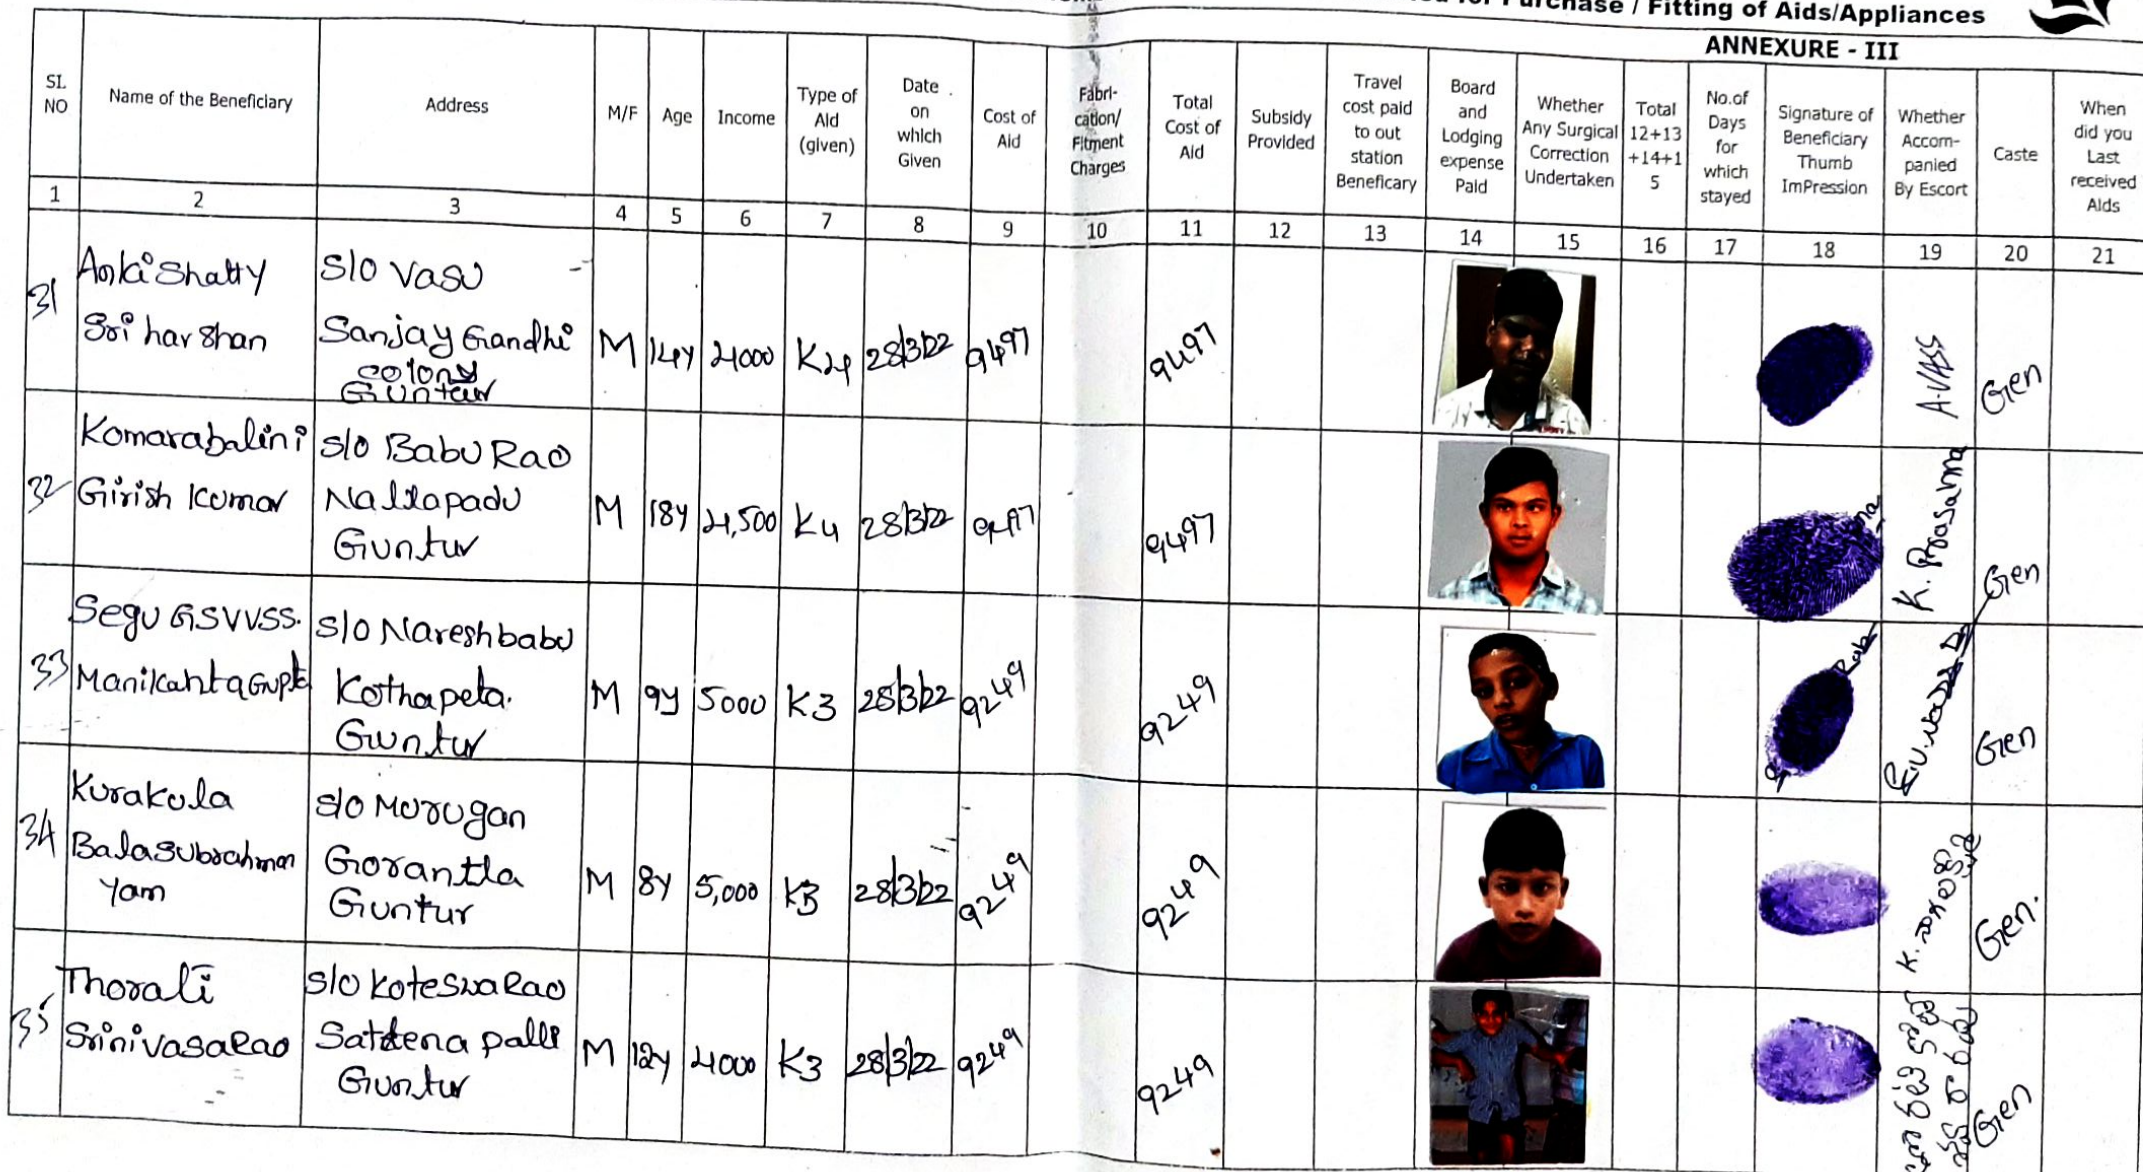 for Purchase / Fitting of Aids/Appliances
ANNEXURE - III
SL NO
Name of the Beneficiary
Address
M/F
Age
Income
Type of Aid (given)
Date on which Given
Cost of Aid
Fabri-cation/ Fitment Charges
Total Cost of Aid
Subsidy Provided
Travel cost paid to out station Beneficary
Board and Lodging expense Paid
Whether Any Surgical Correction Undertaken
Total 12+13 +14+1 5
No.of Days for which stayed
Signature of Beneficiary Thumb ImPression
Whether Accom-panied By Escort
Caste
When did you Last received Aids
1 2 3 4 5 6 7 8 9 10 11 12 13 14 15 16 17 18 19 20 21
31
Anki Shatty
Sri harshan
S/o Vasu
Sanjay Gandhi
colony
Guntur
M 14y 4000 K4 28/3/22 9497 9497 Gen
32
Komarabalini
Girish Kumar
S/o Babu Rao
Nallapadu
Guntur
M 18y 4,500 K4 28/3/22 9497 9497 K. Prasanna Gen
33
Segu GSVVSS.
Manikanta Gupta
S/o Nareshbabu
Kothapeta.
Guntur
M 9y 5000 K3 28/3/22 9249 9249 Gen
34
Kurakula
Balasubrahman
yam
S/o Murugan
Gorantla
Guntur
M 8y 5,000 K3 28/3/22 9249 9249 Gen.
35
Thorati
SrinivasaRao
S/o KoteswaRao
Sattena palli
Guntur
M 12y 4000 K3 28/3/22 9249 9249 Gen